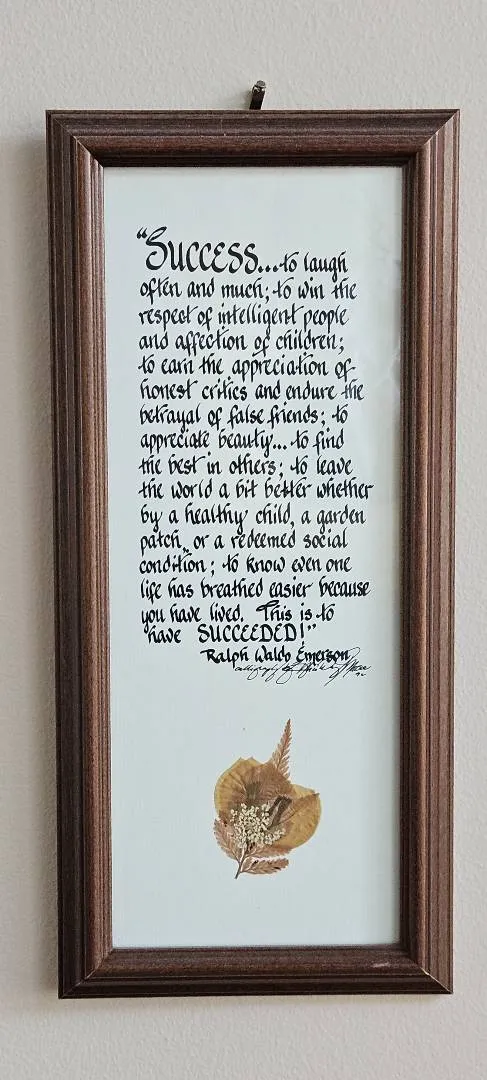 “Success...to laugh
often and much; to win the
respect of intelligent people
and affection of children;
to earn the appreciation of
honest critics and endure the
betrayal of false friends; to
appreciate beauty... to find
the best in others; to leave
the world a bit better whether
by a healthy child, a garden
patch, or a redeemed social
condition; to know even one
life has breathed easier because
you have lived. This is to
have SUCCEEDED!”
Ralph Waldo Emerson
calligraphy by